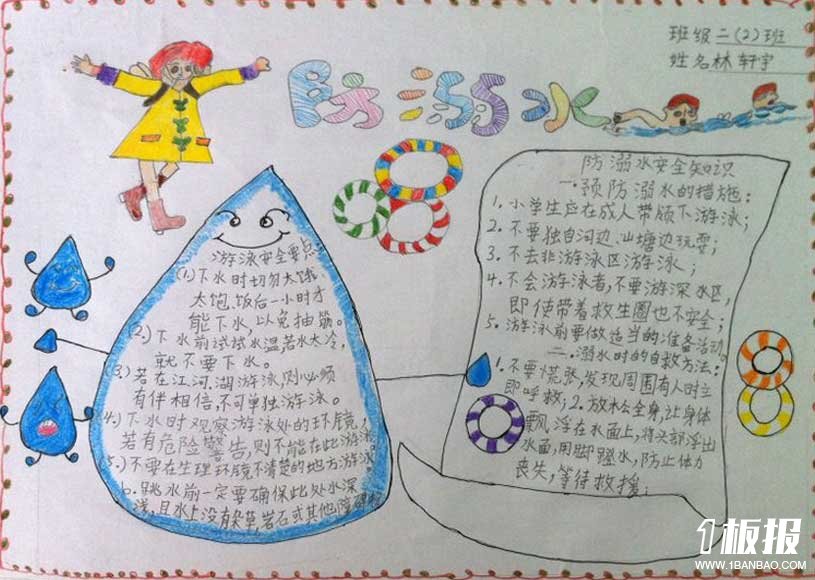 班级二(2)班
姓名林轩宇
防溺水
游泳安全要点
(1)下水时切勿太饿
太饱.饭后一小时才
能下水,以免抽筋。
(2.)下水前试试水温,若水太冷,
就不要下水。
(3.)若在江河,湖游泳则必须
有伴相倍,不可单独游泳。
4.)下水时观察游泳处的环境,
若有危险警告,则不能在此游泳
5.)不要在生理环境不清楚的地方游泳
6.跳水前一定要确保此处水深
浅,且水上没有杂草,岩石或其他障碍
防溺水安全知识
一.预防溺水的措施:
1.小学生应在成人带领下游泳;
2.不要独自河边、山塘边玩耍;
3.不去非游泳区游泳;
4.不会游泳者,不要游深水区,
即使带着救生圈也不安全;
5.游泳前要做适当的准备活动。
二.溺水时的自救方法:
1.不要慌张,发现周围有人时立
即呼救;2.放松全身,让身体
飘浮在水面上,将头部浮出
水面,用脚踏水,防止体力
丧失,等待救援;
1板报
WWW.1BANBAO.COM